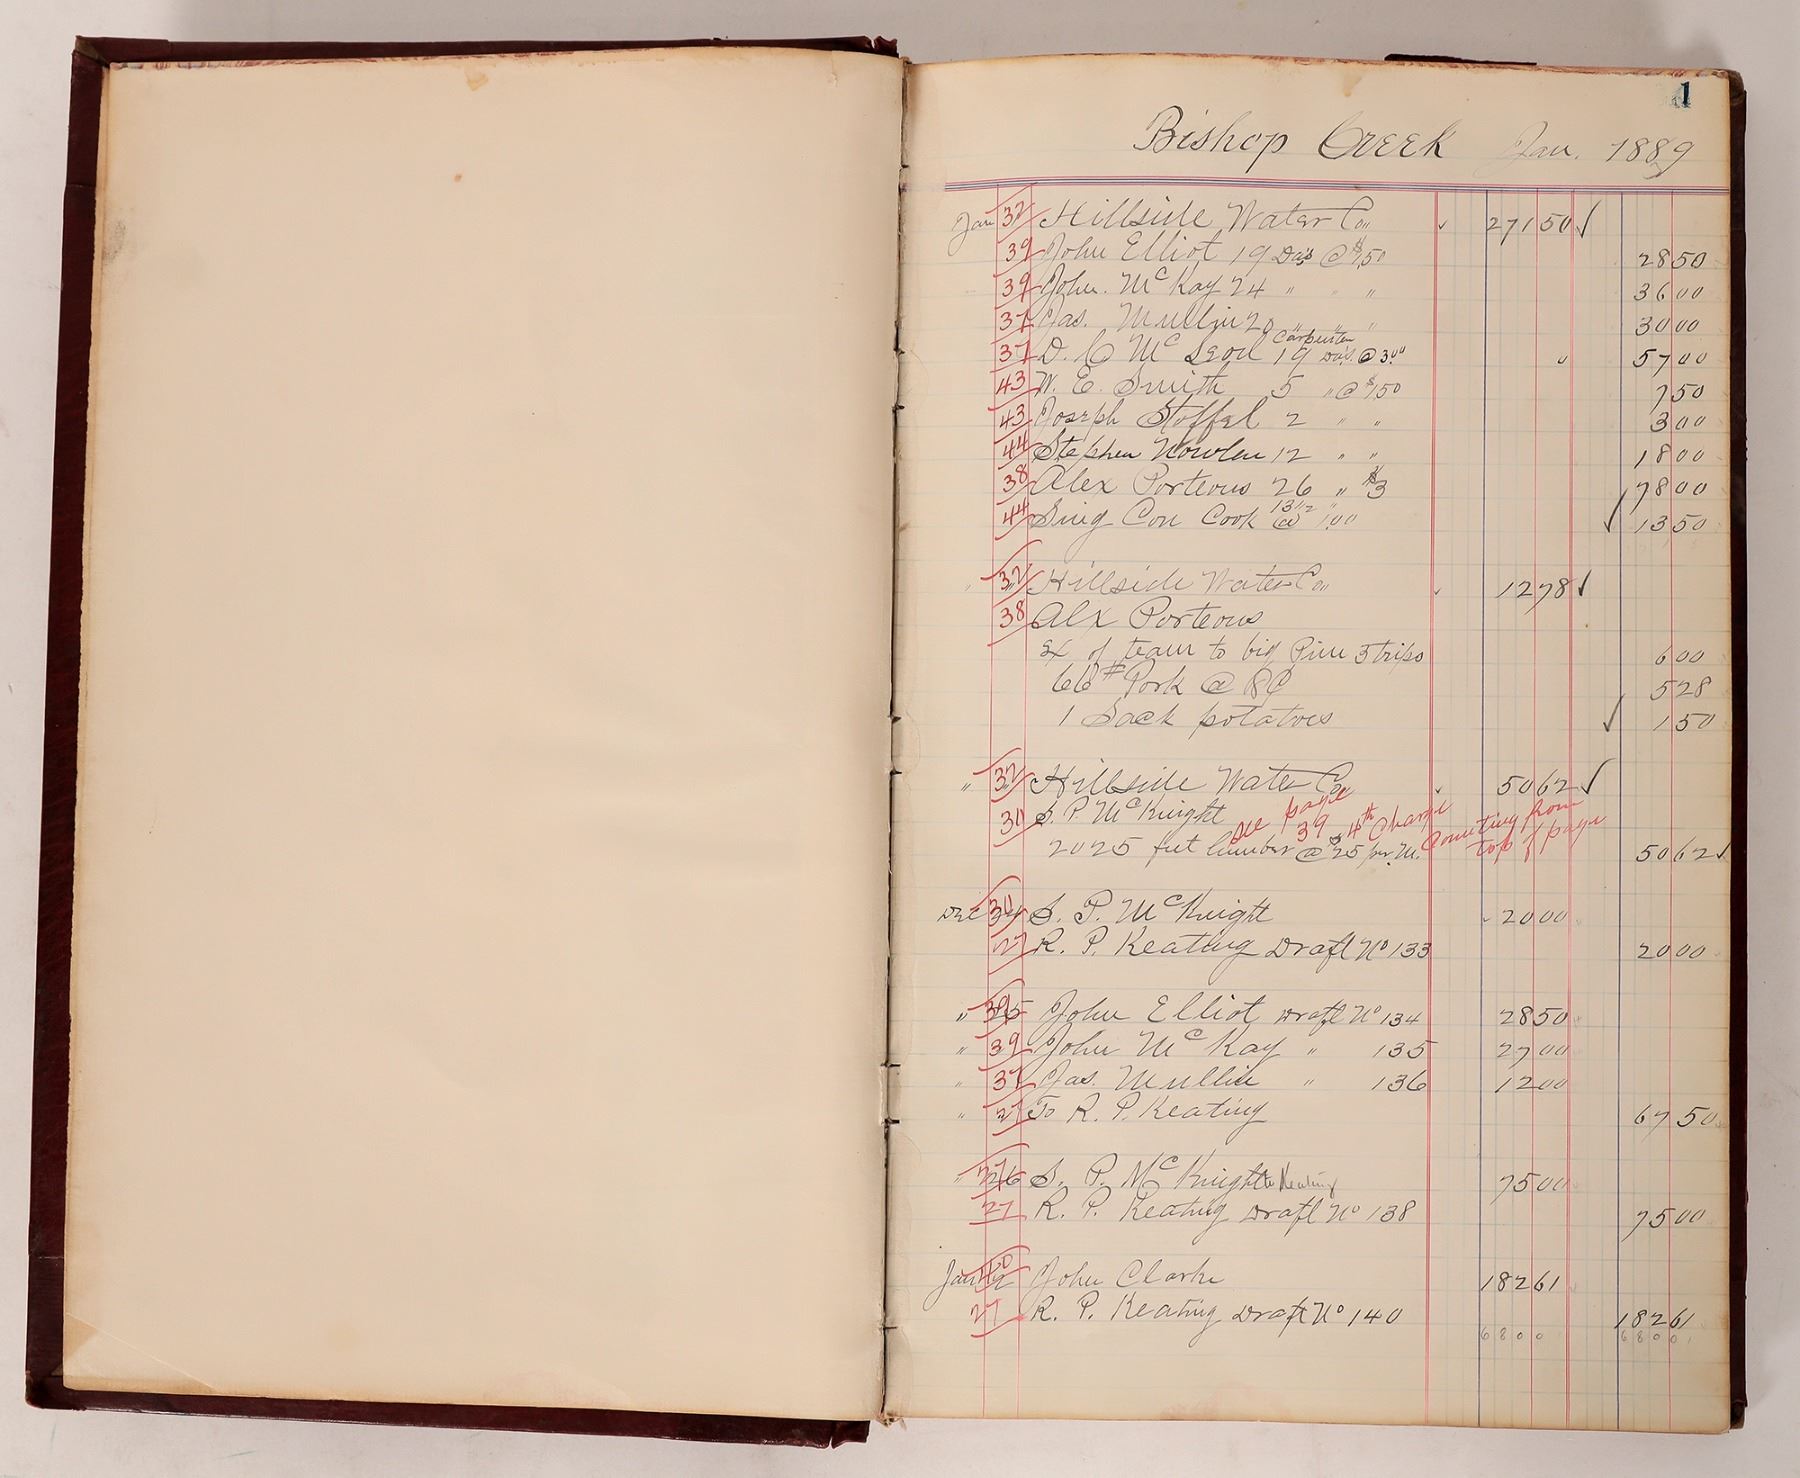 1
Bishop Creek Jan. 1889
Jan 32 Hillside Water Co. 271 50 ✓
39 John Elliot 19 Das @ $1.50 28 50
39 John. McKay 24 " " " 36 00
37 Jas. Mullin 20 " " " 30 00
Carpenter
37 D. C McLeod 19 Das. @ 3.00 57 00
43 W. E. Smith 5 " @ $1.50 7 50
43 Joseph Stoffel 2 " " 3 00
44 Stephen Nowlen 12 " " 18 00
38 Alex Porteous 26 " $3 78 00
44 Sing Con Cook 13 1/2 @ 1.00 ✓ 13 50
" 32 Hillside Water Co. 12 78 ✓
38 Alx Porteous
of team to big Pine 3 trips 6 00
66# Pork @ 8¢ 5 28
1 Sack potatoes ✓ 1 50
" 32 Hillside Water Co. 50 62 ✓
30 S. P. McKnight see page 39 4th Charge Counting from top of page
2025 feet lumber @ $25 per. M. 50 62 ✓
Dec 30 24 S. P. McKnight 20 00
27 R. P. Keating Draft No 133 20 00
" 39 25 John Elliot Draft No 134 28 50
" 39 John McKay " 135 27 00
" 37 Jas. Mullin " 136 12 00
" 27 To R. P. Keating 67 50
" 26 S. P. McKnight to Keating 75 00
27 R. P. Keating Draft No 138 75 00
Jan 40 John Clarke 182 61
27 R. P. Keating Draft No 140 182 61
6800 6800